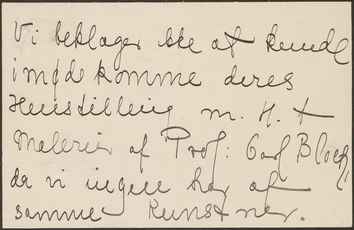 Vi beklager ikke at kunde
imødekomme deres
Henstilling m. H. t
Malerier af Prof: Carl Bloch,
da vi ingen har af
samme Kunstner.